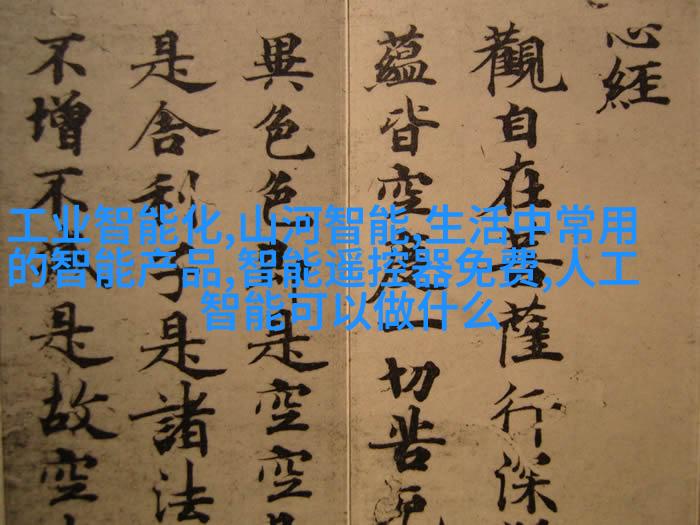 心經
觀自在菩薩行深
蘊皆空度一切苦厄
異色色即是空空
是舍利子是諸法
不增不減是故空
工业智能化,山河智能,生活中常用
的智能产品,智能遥控器免费,人工
智能可以做什么